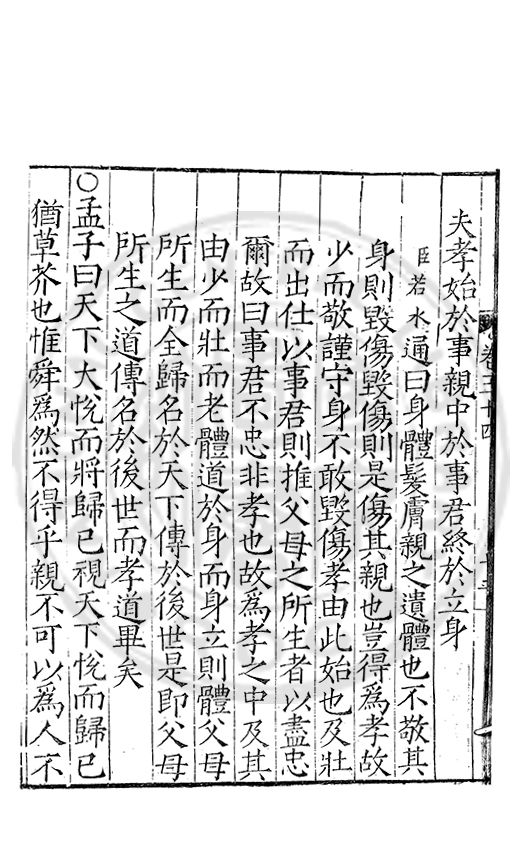 夫孝始於事親中於事君終於立身
臣若水通曰身體髮膚親之遺體也不敬其
身則毀傷毀傷則是傷其親也豈得爲孝故
少而敬謹守身不敢毀傷孝由此始也及壯
而出仕以事君則推父母之所生者以盡忠
爾故曰事君不忠非孝也故爲孝之中及其
由少而壯而老體道於身而身立則體父母
所生而全歸名於天下傳於後世是即父母
所生之道傳名於後世而孝道畢矣
○孟子曰天下大悅而將歸己視天下悅而歸己
猶草芥也惟舜爲然不得乎親不可以爲人不
卷五十四